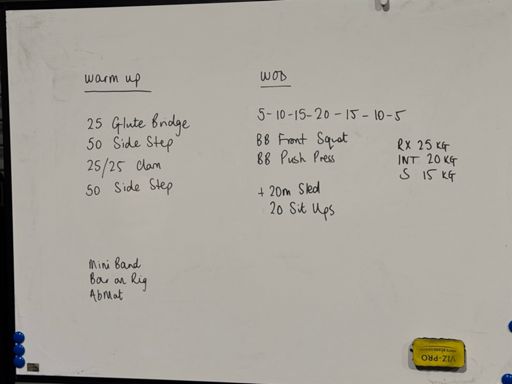 Warm up
25 Glute Bridge
50 Side Step
25/25 Clam
50 Side Step
Mini Band
Bar on Rig
AbMat
WOD
5-10-15-20-15-10-5
BB Front Squat
BB Push Press
RX 25 KG
INT 20 KG
S 15 KG
+ 20m Sled
20 Sit Ups
VIZ-PRO